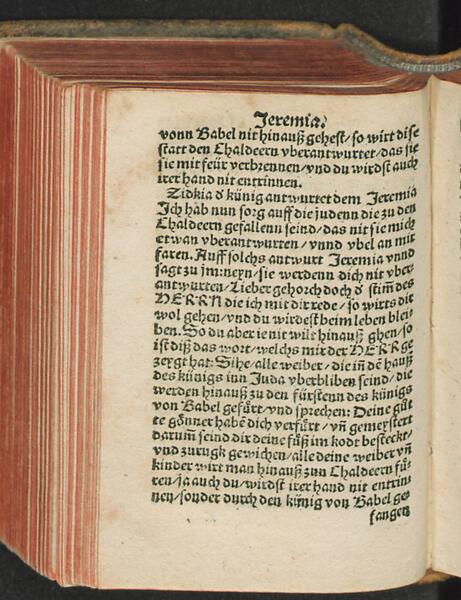 Jeremia.
vonn Babel nit hinauß gehest/ so wirt dise
statt den Chaldeern vberantwurtet/ das sie
sie mit feür verbrennen/ vnd du wirdst auch
irer hand nit entrinnen.
Zidkia d künig antwurtet dem Jeremia
Ich hab nun sorg auff die judenn die zu den
Chaldeern gefallenn seind/ das nit sie mich
etwan vberantwurten/ vnnd vbel an mir
faren. Auff solchs antwurt Jeremia vnnd
sagt zu jm: neyn/ sie werdenn dich nit vber-
antwurten/ Lieber gehorch doch d stim des
HERRN die ich mit dir rede/ so wirts dir
wol gehen/ vnd du wirdest beim leben blei-
ben. So du aber ie nit wilt hinauß ghen/ so
ist diß das wort/ welchs mir der HERR ge
zeygt hat: Sihe/ alle weiber/ die iñ dē hauß
des künigs inn Juda vberbliben seind/ die
werden hinauß zu den fürstenn des künigs
von Babel gefůrt/ vnd sprechen: Deine gůt
te gönner habē dich verfůrt/ vñ gemeystert
darum̃ seind dir deine fůß im kodt besteckt/
vnd zurugk gewichen/ alle deine weiber vñ
kinder wirt man hinauß zun Chaldeern fů-
ren/ ja auch du/ wirdst irer hand nit entrin
nen/ sonder durch den künig von Babel ge-
fangen